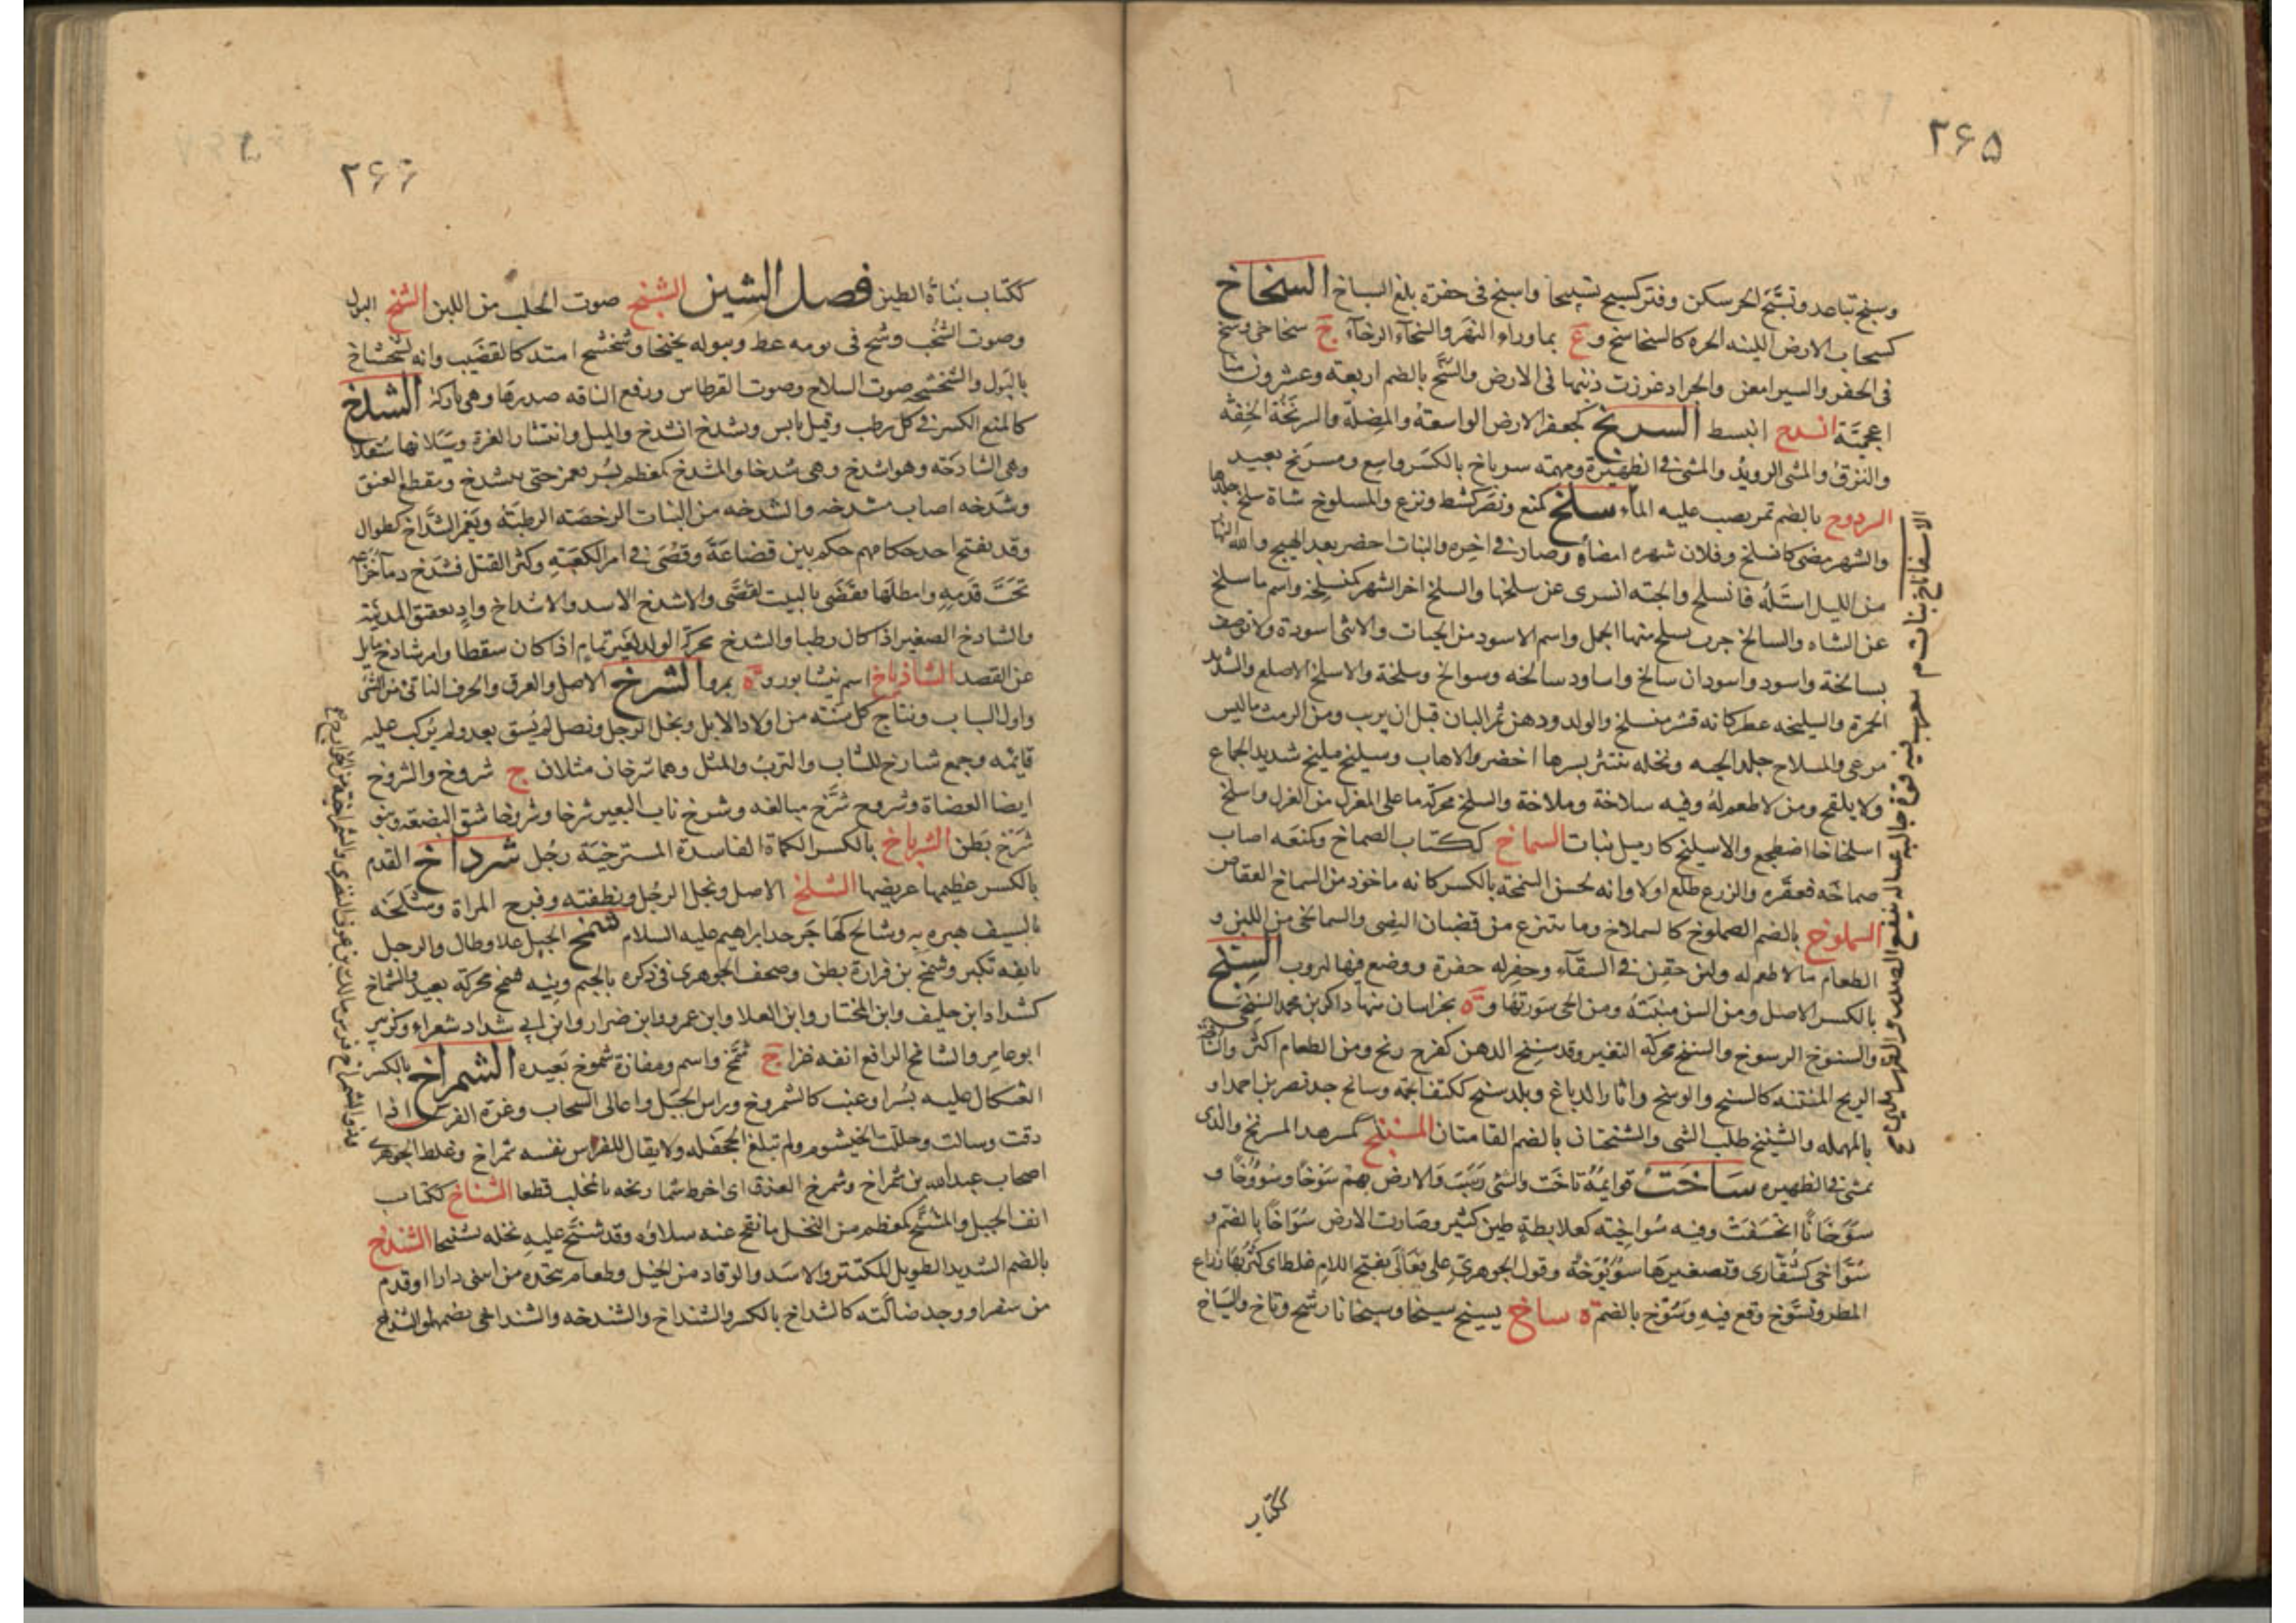 ۲۶۵
وسبخ تباعد وتسبَّخ الحر سكن وفتر كسبخ تسبيخا واسبخ فى حفره بلغ السباخ السخاخ
كسحاب الارض اللينه الحره كالسخاسخ و ع بماوراء النهر والسخاء الرخاء ج سخاخى وسخ
فى الحفر والسير امعن والجراد غرزت ذنبها فى الارض والسُّخ بالضم اربعة وعشرون منا
اعجميَّة انسدخ انبسط السربخ كجعفر الارض الواسعة والمضلة والسربخة الخفة
والنزق والمشى الرويد والمشى فى الظهيرة ومهمه سرباخ بالكسر واسع ومسربخ بعيد
السردوخ بالضم تمر يصب عليه الماء سلخ كمنع ونصر كشط ونزع والمسلوخ شاة سلخ جلدها
والشهر مضى كانسلخ وفلان شهره امضاه وصار فى اخره والنبات اخضر بعد الهيج والله النهار
من الليل استله فانسلخ والحية انسرى عن سلختها والسلخ اخر الشهر كمنسلخه واسم ما سلخ
عن الشاه والسالخ جرب يسلخ منها الجمل واسم الاسود من الحيات والانثى اسودة ولا توصف
بسالخة واسود واسودان سالخ واساود سالخه وسوالخ وسلخة والاسلخ الاصلع والشديد
الحمرة والسليخه عطر كانه قشر منسلخ والولد ودهن ثمر البان قبل ان يربب ومن الرمث ما ليس
مرعى والمسلاخ جلد الحيه ونخله ينتثر بسرها اخضر والاهاب وسليخ مليخ شديد الجماع
ولا يلقح ومن لا طعم له وفيه سلاخة وملاخة والسلخ محركة ما على المغزل من الغزل واسلخ
اسلخاخا اضطجع والاسليخ كازميل نبات السماخ ككتاب الصماخ وكمنعه اصاب
صماخه فعقره والزرع طلع اولا وانه لحسن السمخة بالكسر كانه ماخوذ من السماخ العقاص
السملوخ بالضم الصملوخ كالسملاخ وما ينتزع من قضبان النصى والسمالخى من اللبن و
الطعام ما لا طعم له ولبن حقن فى السقاء وحفر له حفرة ووضع فيها ليروب السنخ
بالكسر الاصل ومن السن منبته ومن الحمى سورتها و ة بخراسان منها ذاكر بن محمد السنخى
والسنوخ الرسوخ والسنخ محركه التغير وقد سنخ الدهن كفرح زنخ ومن الطعام اكثر
الريح المنتنه كالسنخ والوسخ واثار الدباغ وبلد سنخ ككتف محمة وسانخ جد نصر بن احمد او
بالمهمله والسنيخ طلب الشى والسنختان بالضم القامتان المسنبخ كمسرهد المسربخ والذى
يمشى فى الظهيره ساخت قوايمه ثاخت والشى رسب والارض بهم سَوْخًا وسُوُوخًا و
سَوَخَانًا انخسفت وفيه سُواخِيَة كعلابطة طين كثير وصارت الارض سُوّاخًا بالضم و
سُوّاخى كشُقّارى وتصغيرها سُوَيْوِخَةٌ وقول الجوهرى على فَعَالَى بفتح اللام غلط اى كثر بها رزاغ
المطر وتسوَّخ وقع فيه وسُوخ بالضم ة ساخ يسيخ سيخا وسيخانا رسخ وثاخ والسِّيَاخ
ككتاب
الاسفاناخ نبات م معرب فيه قوة جالية غسالة ينفع الصدر والظهر ملين
۲۶۶
ككتاب بناة الطين فصل الشين الشخ صوت الحلب من اللبن الشخ البول
وصوت الشخب وشخ فى نومه غط وببوله يشخ شخا وشخشخ امتد كالقضيب وانه لشخشاخ
بالبول والشخشخه صوت السلاح وصوت القرطاس ورفع الناقه صدرها وهى باركة الشدخ
كالمنع الكسر فى كل رطب وقيل يابس وشدخ انشدخ والميل وانتشار الغرة وسيلانها سفلا
وهى الشادخه وهو اشدخ وهى شدخا والمشدخ كمعظم بسر يغمز حتى ينشدخ ومقطع العنق
وشدخه اصاب مشدخه والشدخه من النبات الرخصه الرطبة ويعمر الشداخ كطوال
وقد يفتح احد حكامهم حكم بين قضاعة وقصى فى امر الكعبة وكثر القتل فشدخ دماء خزاعه
تحت قدمه وابطلها فقضى بالبيت لقصى والاشدخ الاسد والاشداخ واد بعقيق المدينة
والشادخ الصغير اذا كان رطبا والشدخ محركة الولد لغير تمام اذا كان سقطا وامر شادخ مايل
عن القصد الشاذياخ اسم نيشابور و ة بمرو الشرخ الاصل والعرق والحرف الناتئ من الشئ
واول الشباب ونتاج كل سنة من اولاد الابل ونجل الرجل ونصل لم يسق بعد ولم يركب عليه
قايمه وجمع شارخ للشاب والترب والمثل وهما شرخان مثلان ج شروخ والشروخ
ايضا العضاة وشروخ شرَّخ مبالغه وشرخ ناب البعير شرخا وشروخا شق البضعة وبنو
شرخ بطن الشرباخ بالكسر الكماة الفاسدة المسترخية رجل شرداخ القدم
بالكسر عظيمها عريضها الشلخ الاصل ونجل الرجل ونطفته وفرج المراة وشلخه
بالسيف هبره به وشالخ كهاجر جد ابراهيم عليه السلام شمخ الجبل علا وطال والرجل
بانفه تكبر وشمخ بن فزارة بطن وصحف الجوهرى فى ذكره بالجيم ونيه شمخ محركة بعيد والشماخ
كشداد ابن حليف وابن المختار وابن العلا وابن عمرو وابن ضرار وابن ابى شداد شعراء وكزبير
ابو عامر والشامخ الرافع انفه عزا ج شُمَّخ واسم ومفازة شموخ بعيده الشمراخ بالكسر
العثكال عليه بسر او عنب كالشمروخ وراس الجبل واعالى السحاب وغرة الفرس اذا
دقت وسالت وجللت الخيشوم ولم تبلغ الجحفله ولا يقال للفرس نفسه شمراخ وغلط الجوهرى
اصحاب عبد الله بن شمراخ وشمرخ العذق اى اخرط شماريخه بالمخلب قطعا الشناخ ككتاب
انف الجبل والمشنَّخ كمعظم من النخل ما نقح عنه سلاؤه وقد شنخ عليه نخله تشنيخا الشندخ
بالضم الشديد الطويل المكتنز والاسد والوقاد من الخيل وطعام يتخذه من ابتنى دارا او قدم
من سفر او وجد ضالته كالشداخ بالكسر والشنداخ والشندخه والشنداخى بضمهما والشندخ